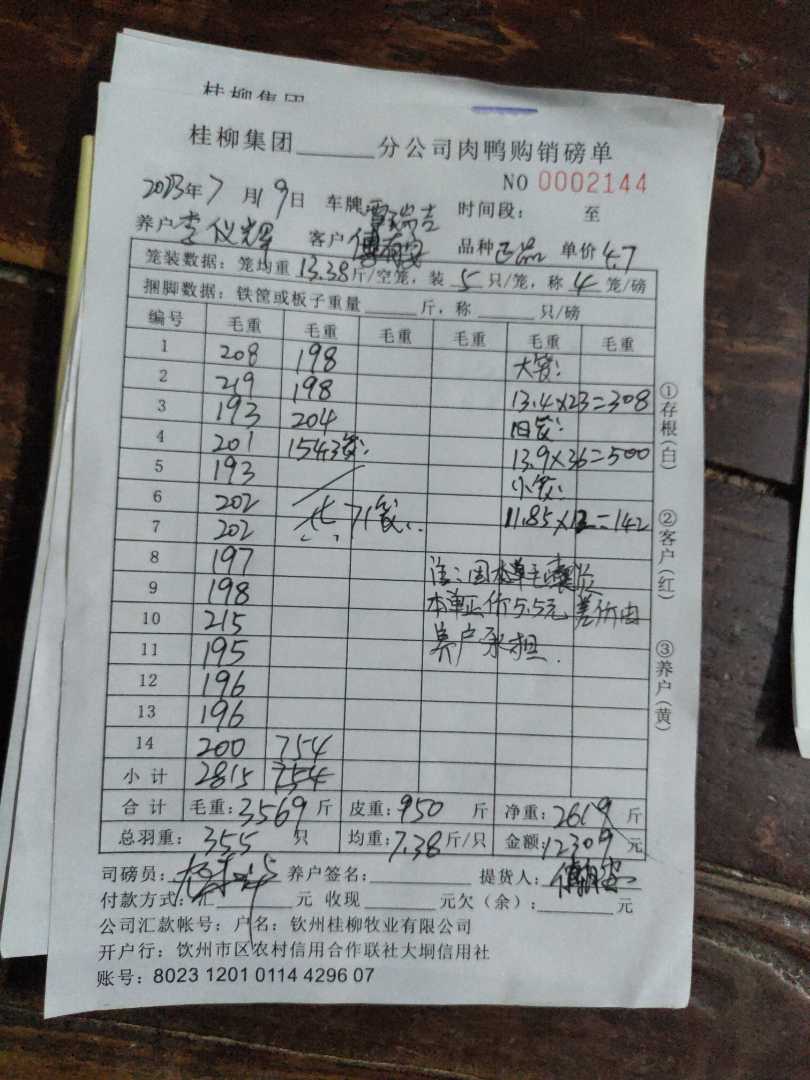 桂柳集团
桂柳集团______分公司肉鸭购销磅单
NO 0002144
2023年7月19日 车牌 瑞吉 时间段: 至
养户 李仪辉 客户 傅 品种 正品 单价 4.7
笼装数据: 笼均重 13.38 斤/空笼, 装 5 只/笼, 称 4 笼/磅
捆脚数据: 铁笼或板子重量______斤, 称______只/磅
编号 毛重 毛重 毛重 毛重 毛重 毛重
1 208 198 大笼:
2 219 198 13.4×23=308
3 193 204 旧笼:
4 201 154 3笼: 13.9×36=500
5 193 小笼:
6 202 11.85×12=142
7 202 共71笼
8 197
9 198 本单正价5.5元 差价由
10 215 养户承担.
11 195
12 196
13 196
14 200 754
小计 2815 754
合计 毛重: 3569 斤 皮重: 950 斤 净重: 2619 斤
总羽重: 355 只 均重: 7.38 斤/只 金额: 12309 元
司磅员: 养户签名:________ 提货人:
付款方式: 汇______元 收现______元欠(余):______元
公司汇款帐号: 户名: 钦州桂柳牧业有限公司
开户行: 钦州市区农村信用合作联社大垌信用社
账号: 8023 1201 0114 4296 07
①存根(白)
②客户(红)
③养户(黄)